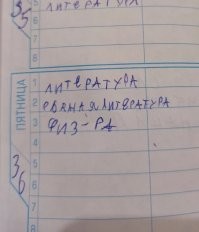 35
5 ЛИТЕРАТУРА
6
7
8
ПЯТНИЦА
36
1 ЛИТЕРАТУРА
2 РОДНАЯ ЛИТЕРАТУРА
3 ФИЗ-РА
4
5
6
7
8